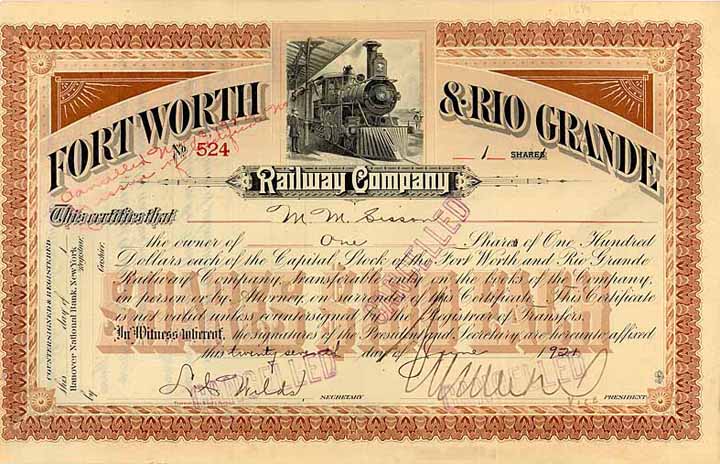 FORT WORTH & RIO GRANDE
No 524
1 SHARES
Railway Company
This certifies that M. M. Sisson
the owner of One Shares of One Hundred
Dollars each of the Capital Stock of the Fort Worth and Rio Grande
Railway Company, transferable only on the books of the Company,
in person or by Attorney, on surrender of this Certificate. This Certificate
is not valid unless countersigned by the Registrar of Transfers.
In Witness whereof, the signatures of the President and Secretary are hereunto affixed
this twenty seventh day of June 1921
SECRETARY
Vice PRESIDENT
COUNTERSIGNED & REGISTERED
this day of 1
Hanover National Bank, New York
Registrar.
by Cashier.
CANCELLED
CANCELLED
CANCELLED
Cancelled